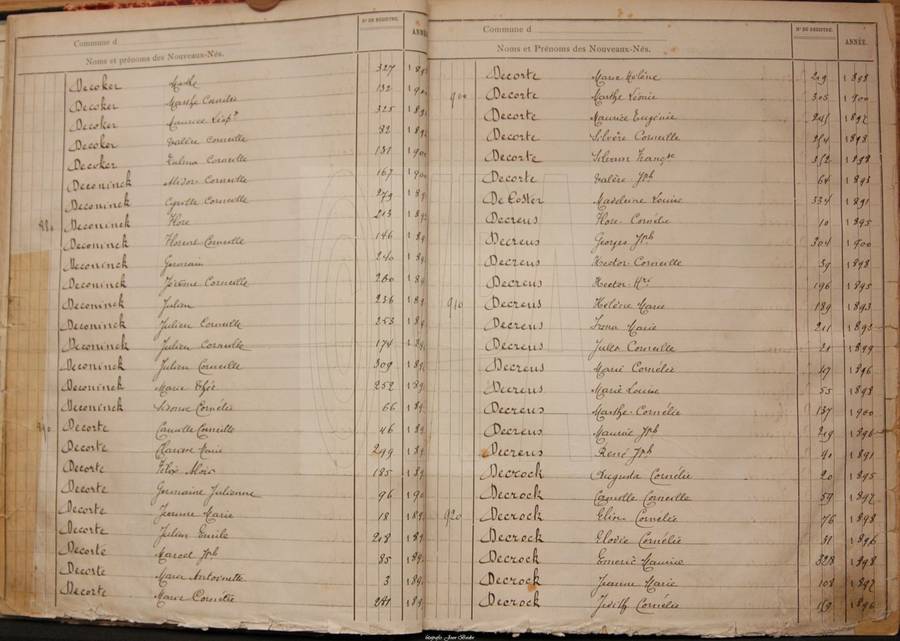 Commune d
Nos DE REGISTRE.
ANNÉE
Noms et prénoms des Nouveaux-Nés.
Decoker Marthe 327 189
Decoker Marthe Cornélie 132 190
Decoker Maurice 325 189
Decoker Valère Corneille 82 189
Decoker Corneille 131 190
Deconinck Corneille 167 190
Deconinck Cyrille Corneille 279 189
880 Deconinck Flore 213 189
Deconinck Florent Corneille 146 189
Deconinck Germain 240 189
Deconinck Jérôme Corneille 260 189
Deconinck Julien 236 189
Deconinck Julien Corneille 253 189
Deconinck Julien Corneille 174 189
Deconinck Julien Corneille 309 189
Deconinck Marie 252 189
Deconinck Cornélie 66 189
890 Decorte Camille Corneille 46 189
Decorte Marie 249 189
Decorte Félix 185 189
Decorte Germaine Julienne 96 190
Decorte Jeanne Marie 18 189
Decorte Julien Emile 218 189
Decorte Marcel Jph 85 189
Decorte Marie Antoinette 3 189
Decorte Marie Cornélie 241 189
Commune d
Nos DE REGISTRE.
ANNÉE.
Noms et Prénoms des Nouveaux-Nés.
Decorte Marie Hélène 219 1898
900 Decorte Marthe Léonie 305 1900
Decorte Maurice Eugénie 241 1892
Decorte Silvère Corneille 254 1898
Decorte 352 1898
Decorte Valère Jph 64 1893
De Coster Madeleine Louise 334 1891
Decreus Flore Cornélie 10 1895
Decreus Georges Jph 304 1900
Decreus Hector Corneille 39 1898
Decreus Hector Hri 196 1895
910 Decreus Hélène Marie 189 1893
Decreus Irma Marie 211 1895
Decreus Jules Corneille 21 1899
Decreus Marie Cornélie 47 1896
Decreus Marie Louise 55 1898
Decreus Marthe Cornélie 137 1900
Decreus Maurice Jph 219 1896
Decreus René Jph 90 1891
Decrock Augusta Cornélie 20 1895
Decrock Camille Corneille 59 1897
920 Decrock Elina Cornélie 76 1898
Decrock Elodie Cornélie 31 1896
Decrock Emeric Maurice 328 1898
Decrock Jeanne Marie 108 1897
Decrock Judith Cornélie 169 1896